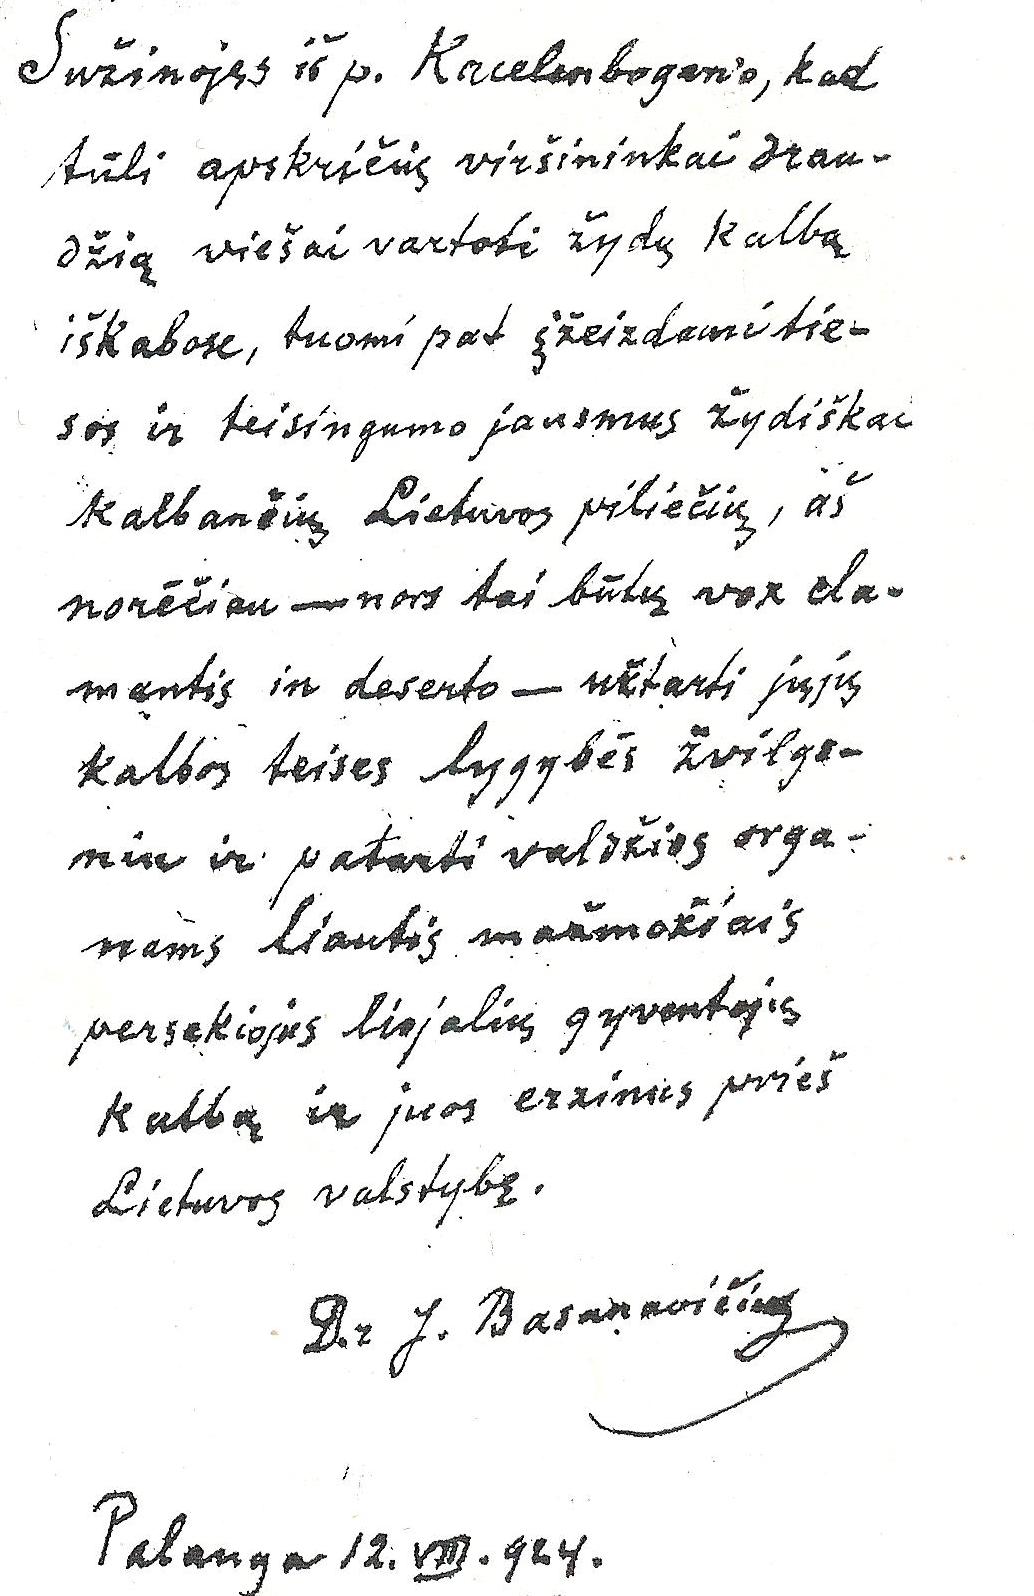 Sužinojęs iš p. Kacelenbogen'o, kad
tūli apskričių viršininkai drau-
džią viešai vartoti žydų kalbą
iškabose, tuomi pat įžeizdami tie-
sos ir teisingumo jausmus žydiškai
kalbančių Lietuvos piliečių, aš
norēčiau — nors tai būtų vox cla-
mantis in deserto — užtarti jųjų
kalbos teises lygybēs žvilgs-
niu ir patarti valdžios orga-
nams liautis mažmožiais
persekiojus liojalių gyventojų
kalbą ir juos erzinus prieš
Lietuvos valstybę.
D.r J. Basanavičius
Palanga 12. VIII. 924.